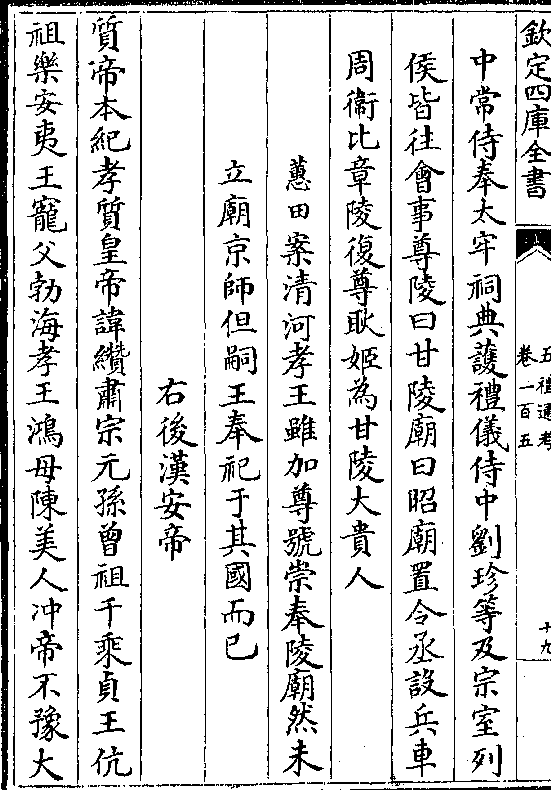 欽定四庫全書
五禮通考
卷一百五
十九
中常侍奉太牢祠典護禮儀侍中劉珍等及宗室列
侯皆往會事尊陵曰甘陵廟曰昭廟置令丞設兵車
周衛比章陵復尊耿姬為甘陵大貴人
蕙田案清河孝王雖加尊號崇奉陵廟然未
立廟京師但嗣王奉祀于其國而已
右後漢安帝
質帝本紀孝質皇帝諱纘肅宗元孫曾祖千乘貞王伉
祖樂安夷王寵父勃海孝王鴻母陳美人冲帝不豫大